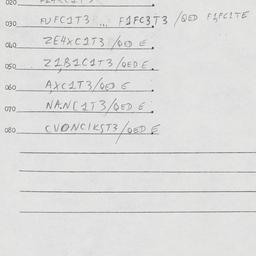 020
030 FUFC1T3 ... F1FC3T3 /QED F1FC1TE
040 ZE4XC1T3 /QED E.
050 Z1B1C1T3 /QED E.
060 AXC1T3/QED E
070 NANC1T3/QED E.
080 CVONCIKST3/QED E